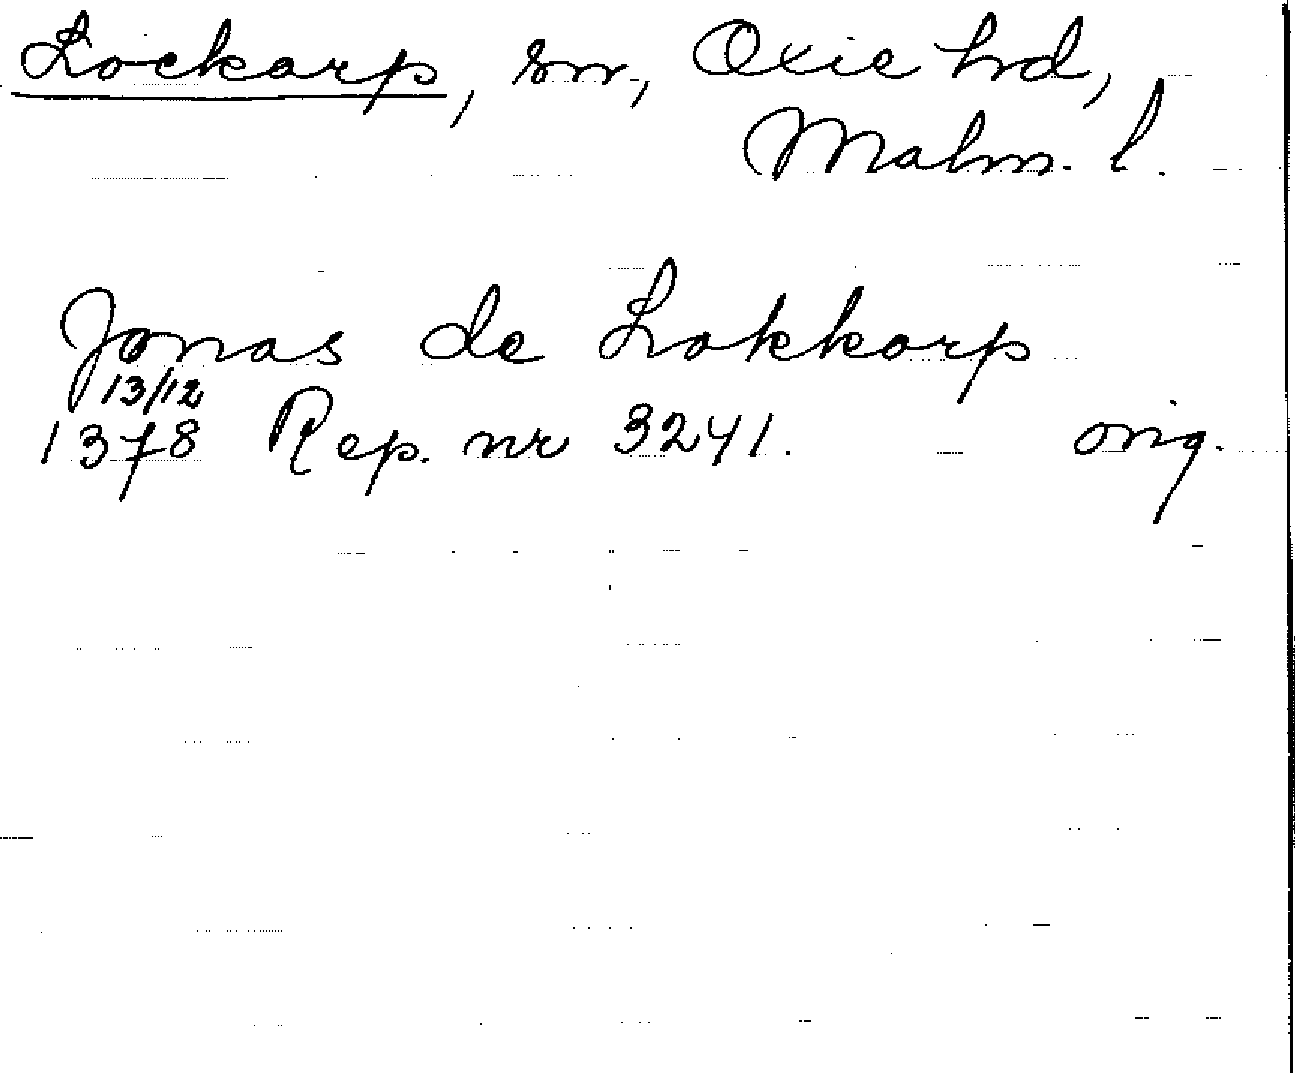 Lockarp, sn, Oxie hd,
Malm. l.
Jonas de Lokkarp
13/12
1378 Rep. nr 3241. orig.